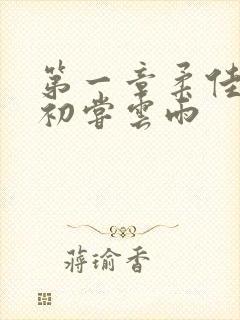 第一章柔佳
初尝雲雨
蔣瑜香